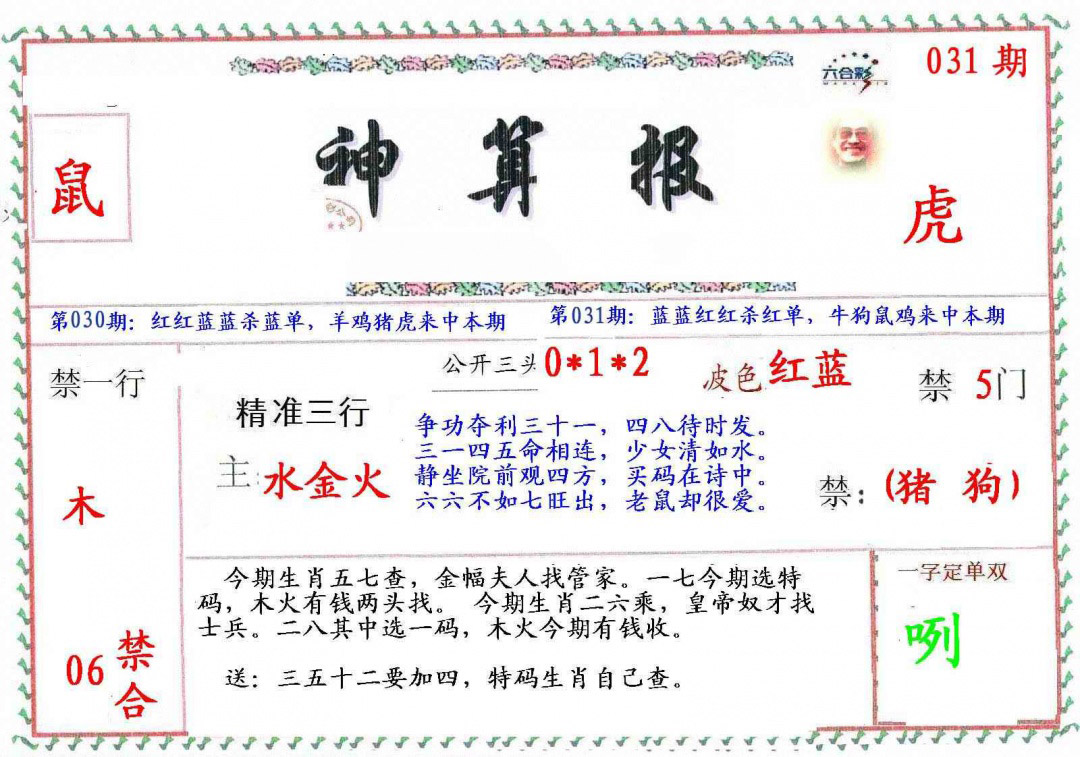 031 期
六合彩
神算报
鼠
虎
第030期：红红蓝蓝杀蓝单，羊鸡猪虎来中本期
第031期：蓝蓝红红杀红单，牛狗鼠鸡来中本期
禁一行
木
06
禁合
公开三头 0*1*2
波色 红蓝
禁 5门
精准三行
主: 水金火
争功夺利三十一，四八待时发。
三一四五命相连，少女清如水。
静坐院前观四方，买码在诗中。
六六不如七旺出，老鼠却很爱。
禁: (猪 狗)
今期生肖五七查，金幅夫人找管家。一七今期选特
码，木火有钱两头找。 今期生肖二六乘，皇帝奴才找
士兵。二八其中选一码，木火今期有钱收。
送：三五十二要加四，特码生肖自己查。
一字定单双
咧